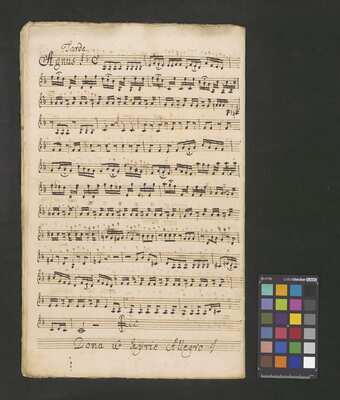 Tarde
Agnus
Dona ut Kyrie Allegro